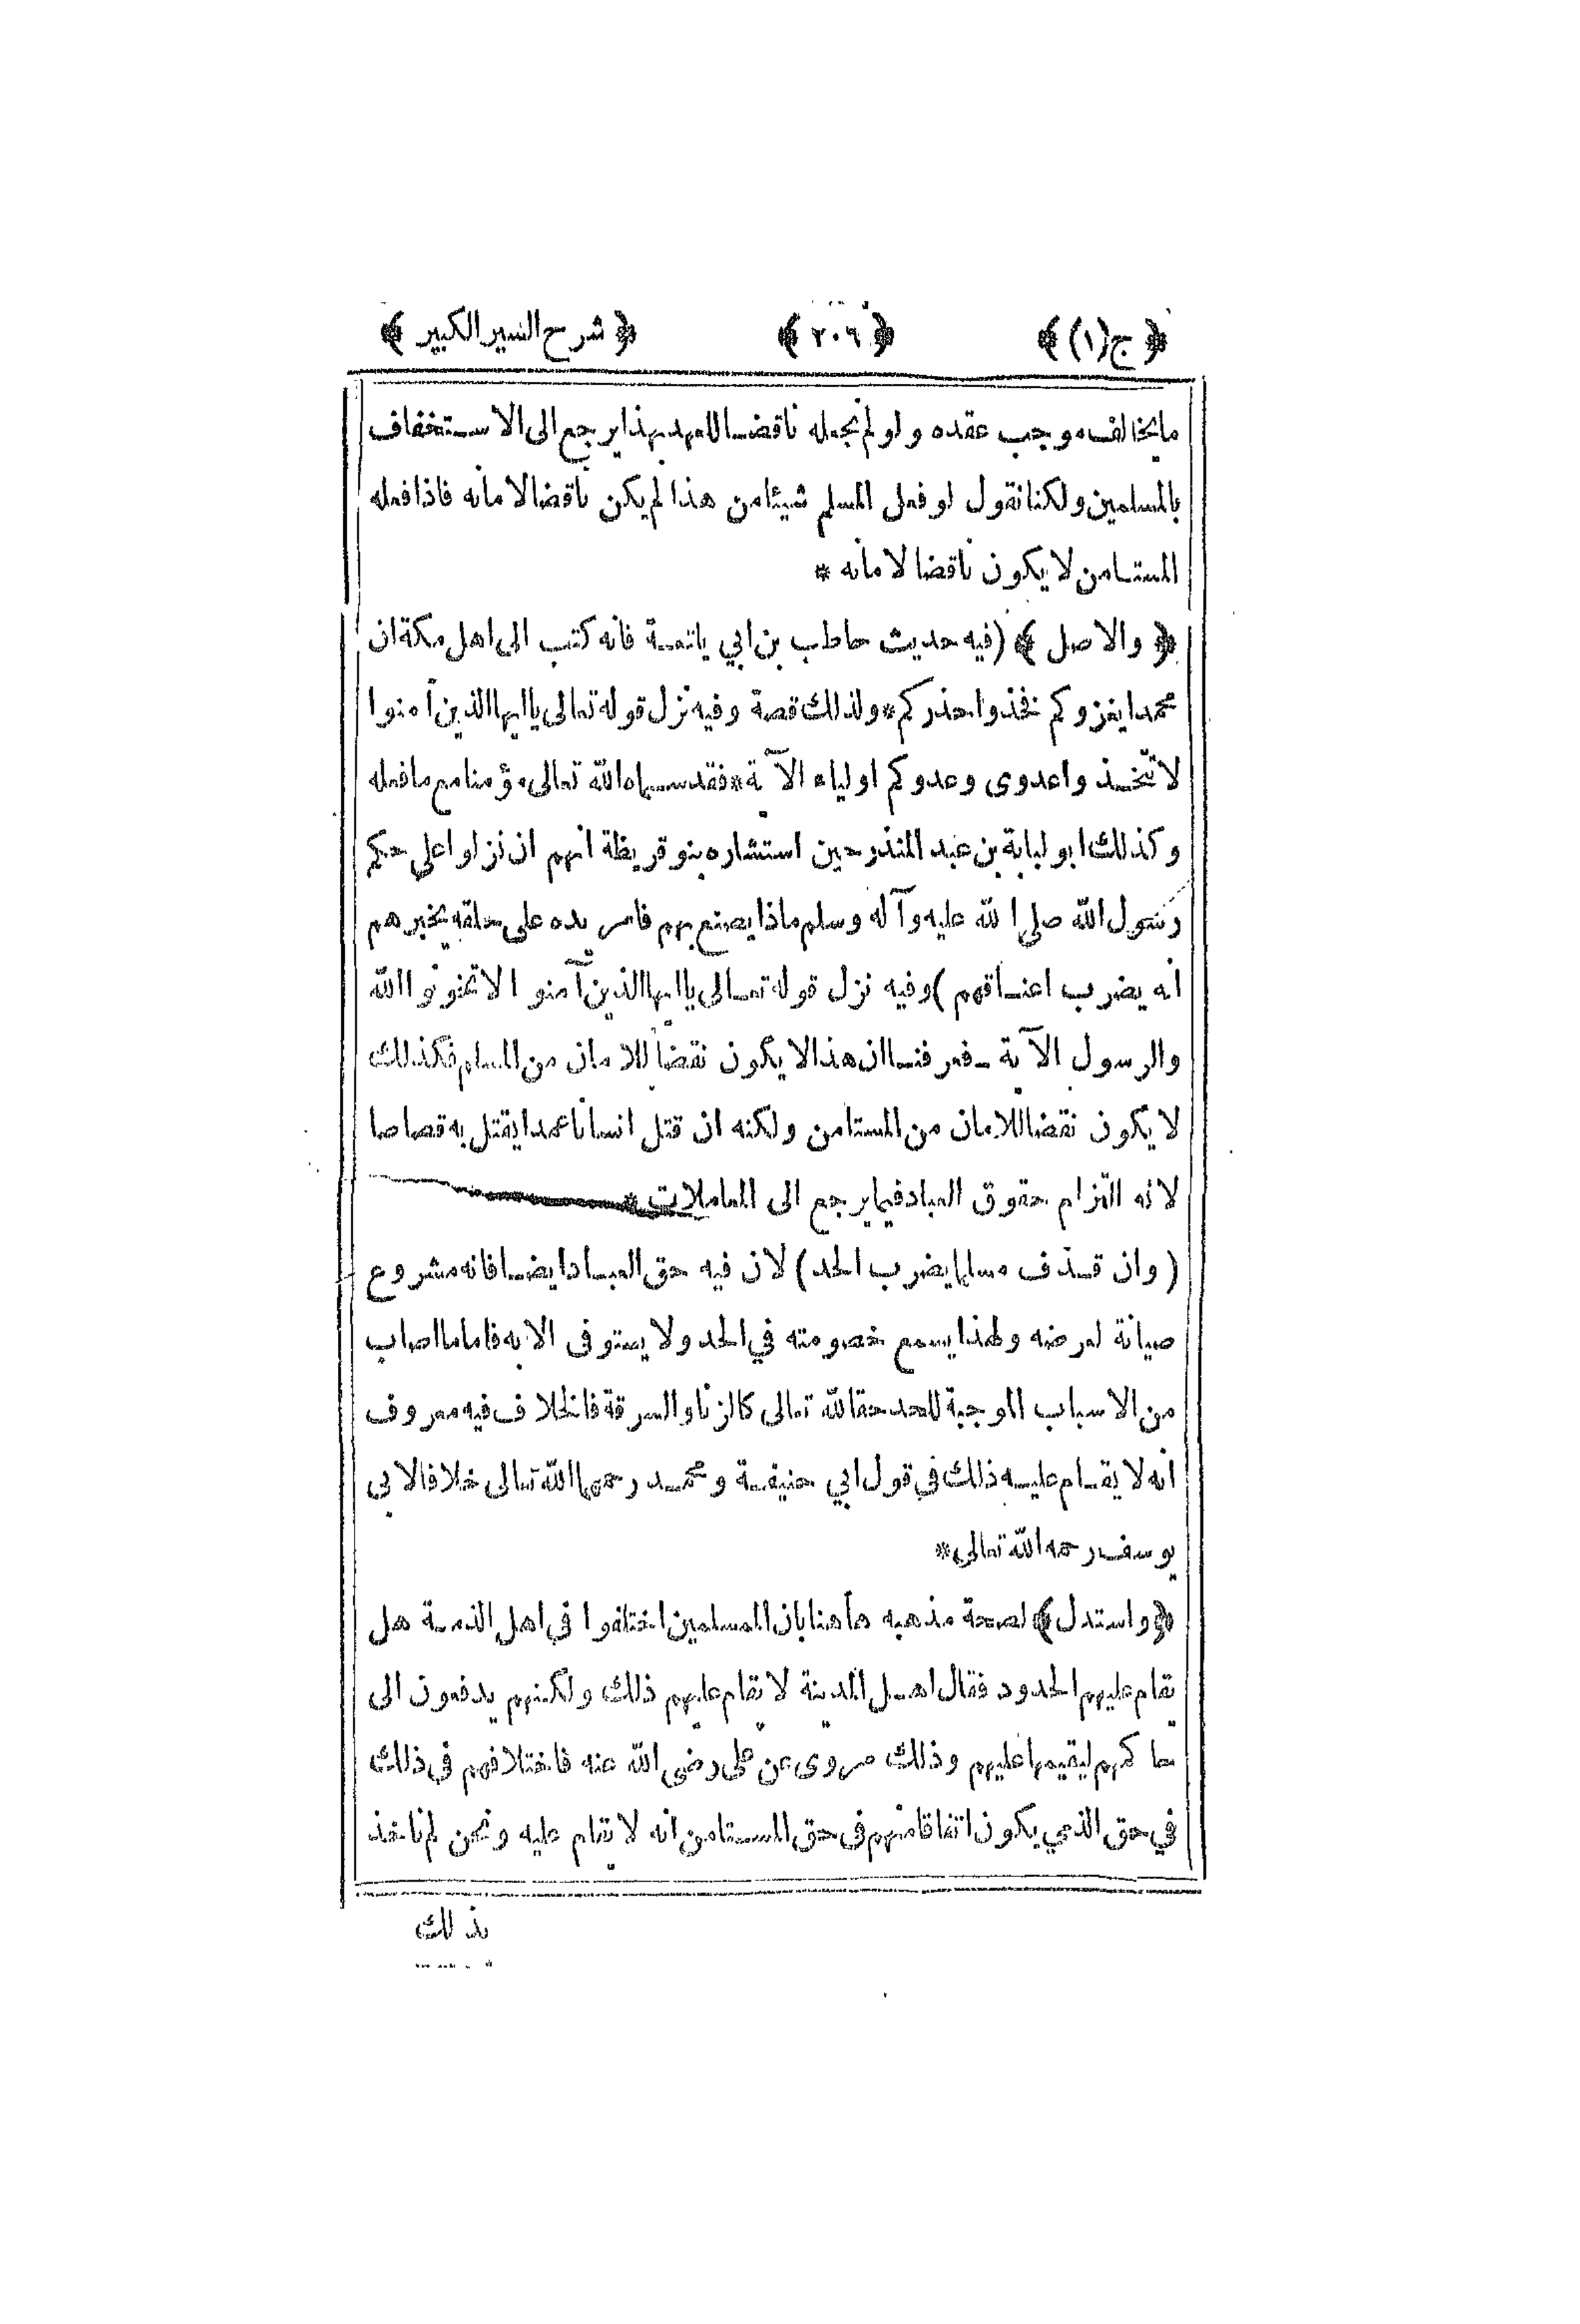 ﴿ ج(١) ﴾ ﴿ ٢٠٦ ﴾ ﴿ شرح السير الكبير ﴾
ما يخالف موجب عقده ولو لم نجعله ناقضا للعهد بهذا يرجع الى الاستخفاف
بالمسلمين ولكنا نقول لو فعل المسلم شيئا من هذا لم يكن ناقضا لامانه فاذا فعله
المستامن لا يكون ناقضا لامانه *
﴿ والاصل ﴾ (فيه حديث حاطب بن ابي ياتعـة فانه كتب الى اهل مكة ان
محمدا يغزوكم فخذوا حذركم * ولذلك قصة وفيه نزل قوله تعالى يا ايها الذين آمنوا
لا تتخذوا عدوى وعدوكم اولياء الآية * فقد سماه الله تعالى مؤمنا مع ما فعله
وكذلك ابو لبابة بن عبد المنذر حين استشاره بنو قريظة انهم ان نزلوا على حكم
رسول الله صلى الله عليه وآله وسلم ماذا يصنع بهم فامر يده على حلقه يخبرهم
انه يضرب اعناقهم) وفيه نزل قوله تعالى يا ايها الذين آمنوا لا تخونوا الله
والرسول الآية ـ فعرفنا ان هذا لا يكون نقضا للامان من المسلم فكذلك
لا يكون نقضا للامان من المستامن ولكنه ان قتل انسانا عمدا يقتل به قصاصا
لانه التزام حقوق العباد فيما يرجع الى المعاملات *
(وان قذف مسلما يضرب الحد) لان فيه حق العباد ايضا فانه مشروع
صيانة لعرضه ولهذا يسمع خصومته في الحد ولا يستوفى الا به فاما ما اصاب
من الاسباب الموجبة للحد حقا لله تعالى كالزنا والسرقة فالخلاف فيه معروف
انه لا يقام عليه ذلك في قول ابي حنيفة ومحمد رحمهما الله تعالى خلافا لابى
يوسف رحمه الله تعالى *
﴿ واستدل ﴾ لصحة مذهبه هاهنا بان المسلمين اختلفوا في اهل الذمة هل
تقام عليهم الحدود فقال اهل المدينة لا تقام عليهم ذلك ولكنهم يدفعون الى
حاكمهم ليقيمها عليهم وذلك مروى عن على رضى الله عنه فاختلافهم فى ذلك
في حق الذمي يكون اتفاقا منهم فى حق المستامن انه لا تقام عليه ونحن لم ناخذ
بذلك